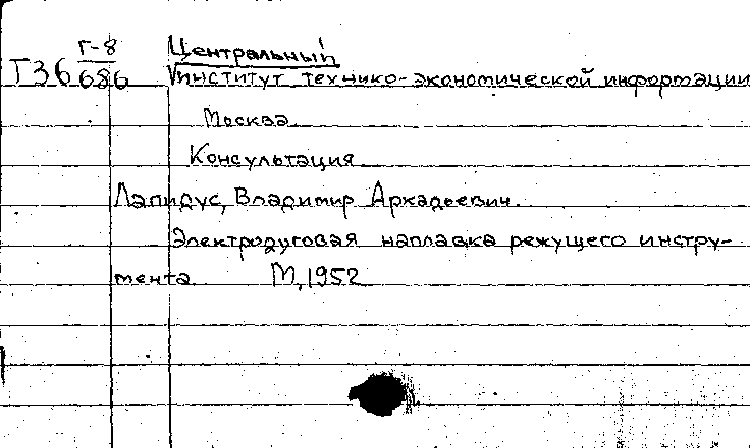 Г-8 Центральный
Т36 686 институт технико-экономической информации
Москва
Консультация
Лапидус, Владимир Аркадьевич.
Электродуговая наплавка режущего инстру-
мента. М, 1952